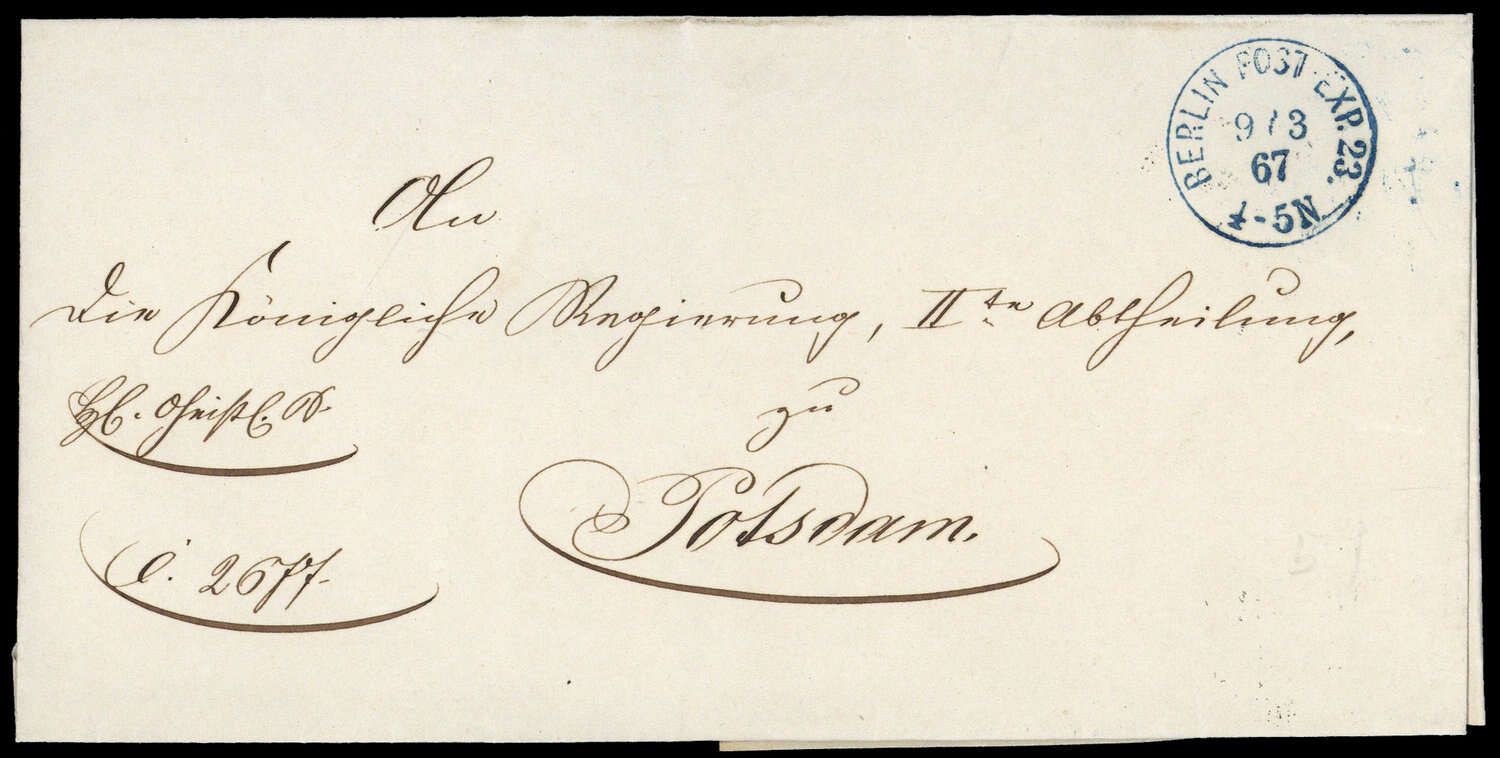 BERLIN POST-EXP. 23.
9/3
67
4-5N
An
die Königliche Regierung, II te Abtheilung,
zu
Potsdam.